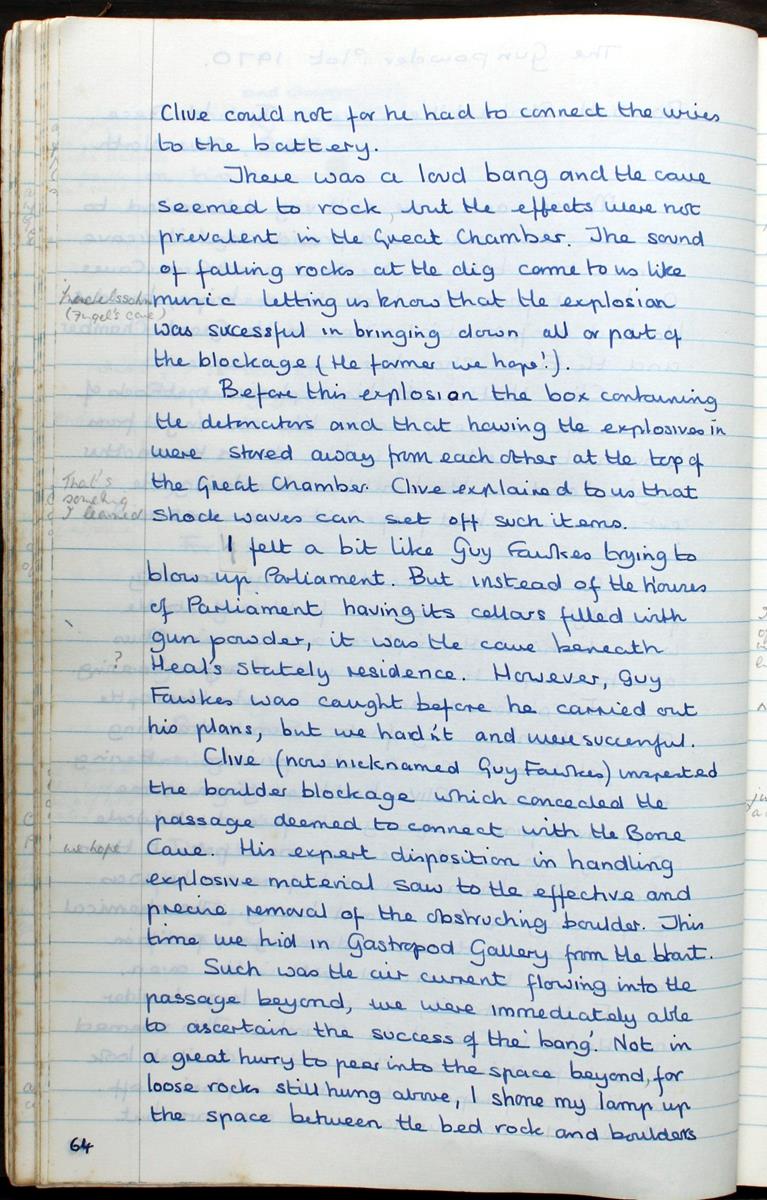 Clive could not for he had to connect the wires
to the battery.
There was a loud bang and the cave
seemed to rock, but the effects were not
prevalent in the Great Chamber. The sound
of falling rocks at the dig came to us like
Mendelssohn
(Fingel's cave)
music letting us know that the explosion
was sucessful in bringing down all or part of
the blockage (the former we hope!).
Before this explosion the box containing
the detonators and that having the explosives in
were stored away from each other at the top of
the Great Chamber. Clive explained to us that
That's
something
I learned
shock waves can set off such items.
I felt a bit like Guy Fawkes trying to
blow up Parliament. But instead of the Houses
of Parliament having its cellars filled with
gun powder, it was the cave beneath
?
Heal's stately residence. However, Guy
Fawkes was caught before he carried out
his plans, but we had'nt and were successful.
Clive (now nicknamed Guy Fawkes) inspected
the boulder blockage which concealed the
passage deemed to connect with the Bone
we hope
Cave. His expert disposition in handling
explosive material saw to the effective and
precise removal of the obstructing boulder. This
time we hid in Gastropod Gallery from the blast.
Such was the air current flowing into the
passage beyond, we were immediately able
to ascertain the success of the 'bang'. Not in
a great hurry to peer into the space beyond, for
loose rocks still hung above, I shone my lamp up
the space between the bed rock and boulders
64